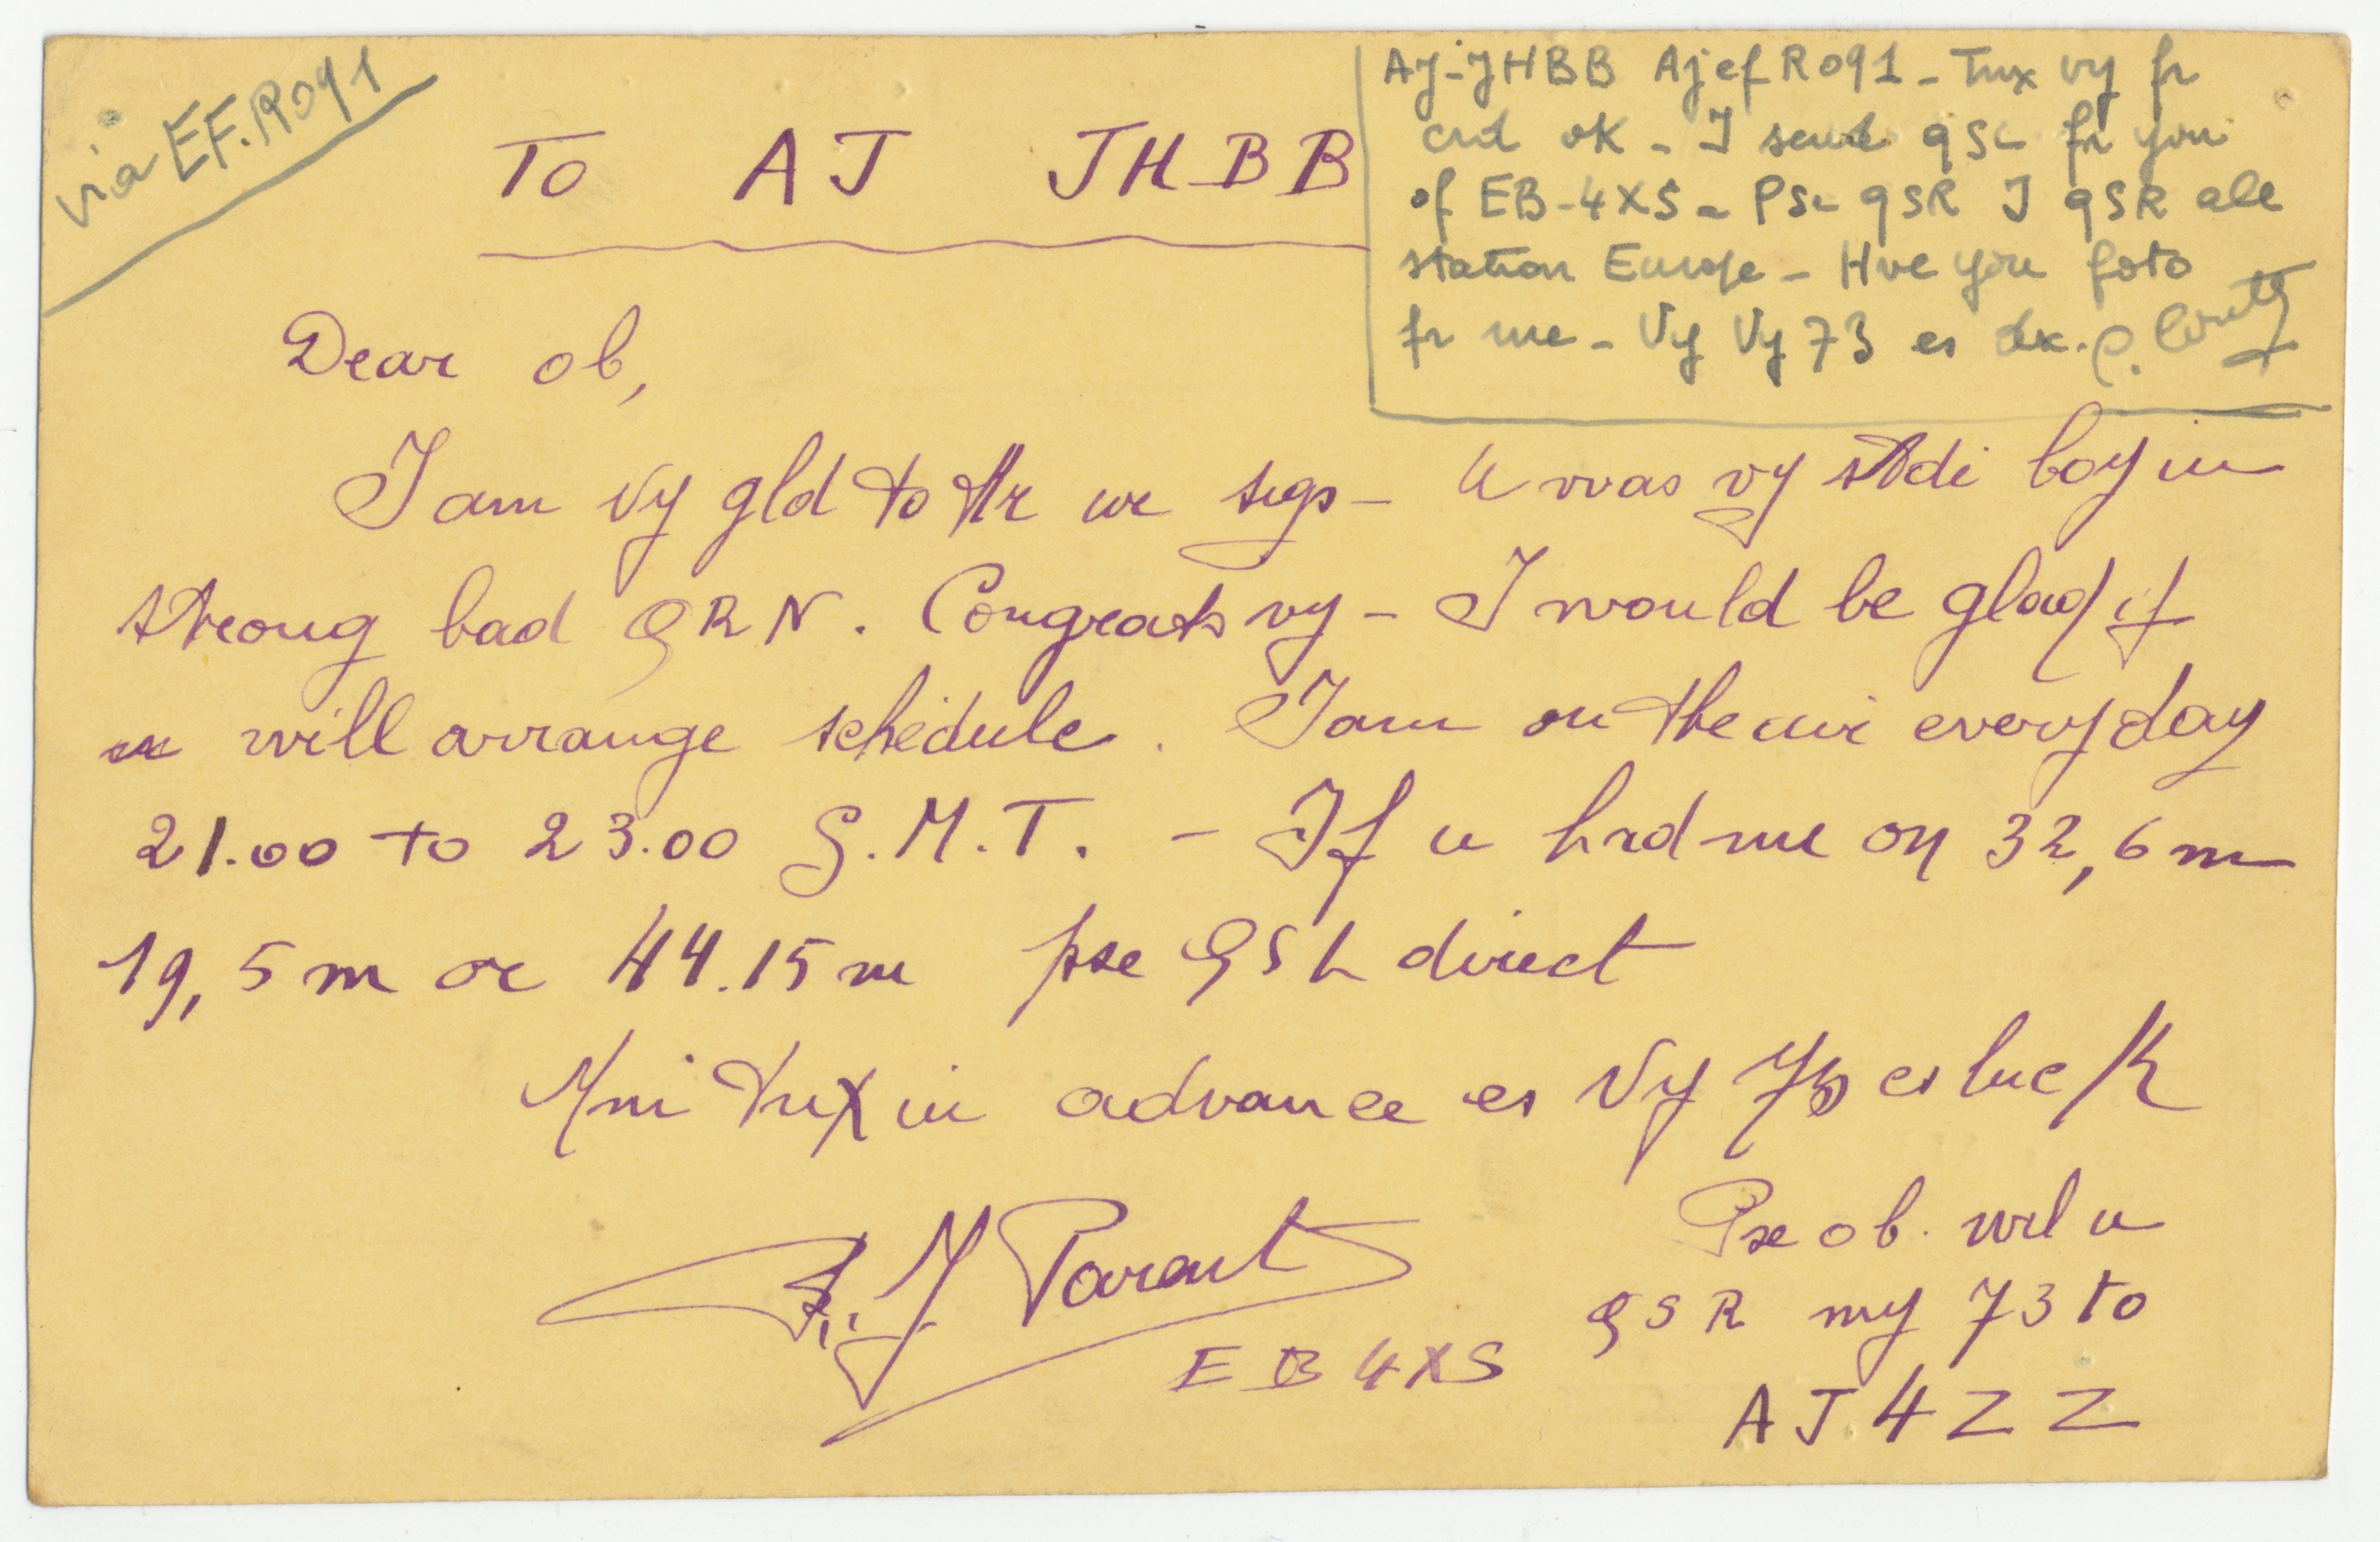 via EF.R091
TO AJ JHBB
AJ-JHBB Aj ef R091 - Tnx vy fr
crd ok - I send qSL fr you
of EB-4XS - PSe qSR I qSR all
station Europe - Hve you foto
fr me - Vy Vy 73 es dx.
Dear ob,
I am vy gld to Hr ur sigs - U was vy stdi boy in
strong bad QRN. Congrats vy - I would be glad if
u will arrange schedule. I am on the air every day
21.00 to 23.00 G.M.T. - If u hrd me on 32,6 m
19,5 m or 44.15 m pse QSL direct
Mni tnx in advance es Vy 73 es luck
Parent
EB4XS
Pse ob. wil u
QSR my 73 to
AJ 4ZZ